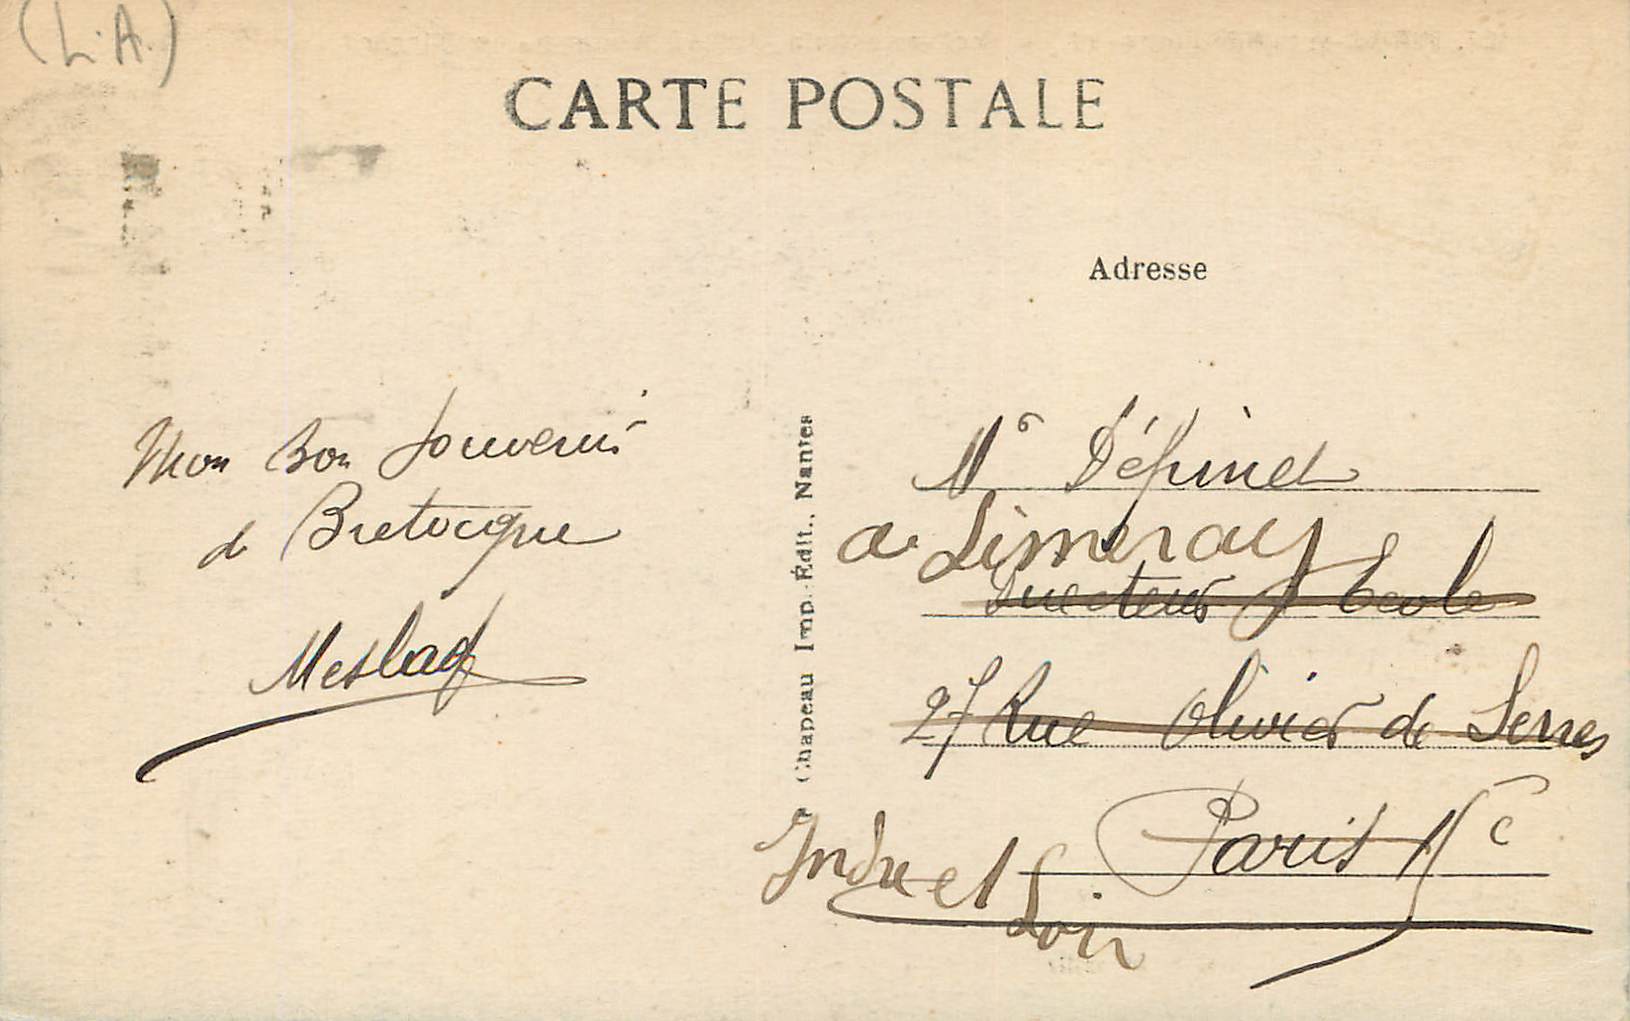 (L.A.)
CARTE POSTALE
Adresse
Mon Bon Souvenir
de Bretocque
Chapeau Imp. Édit., Nantes
Mr Dépinel
a Limeray
Directeur Ecole
27 Rue Olivier de Serres
Paris
Indre et
Loir